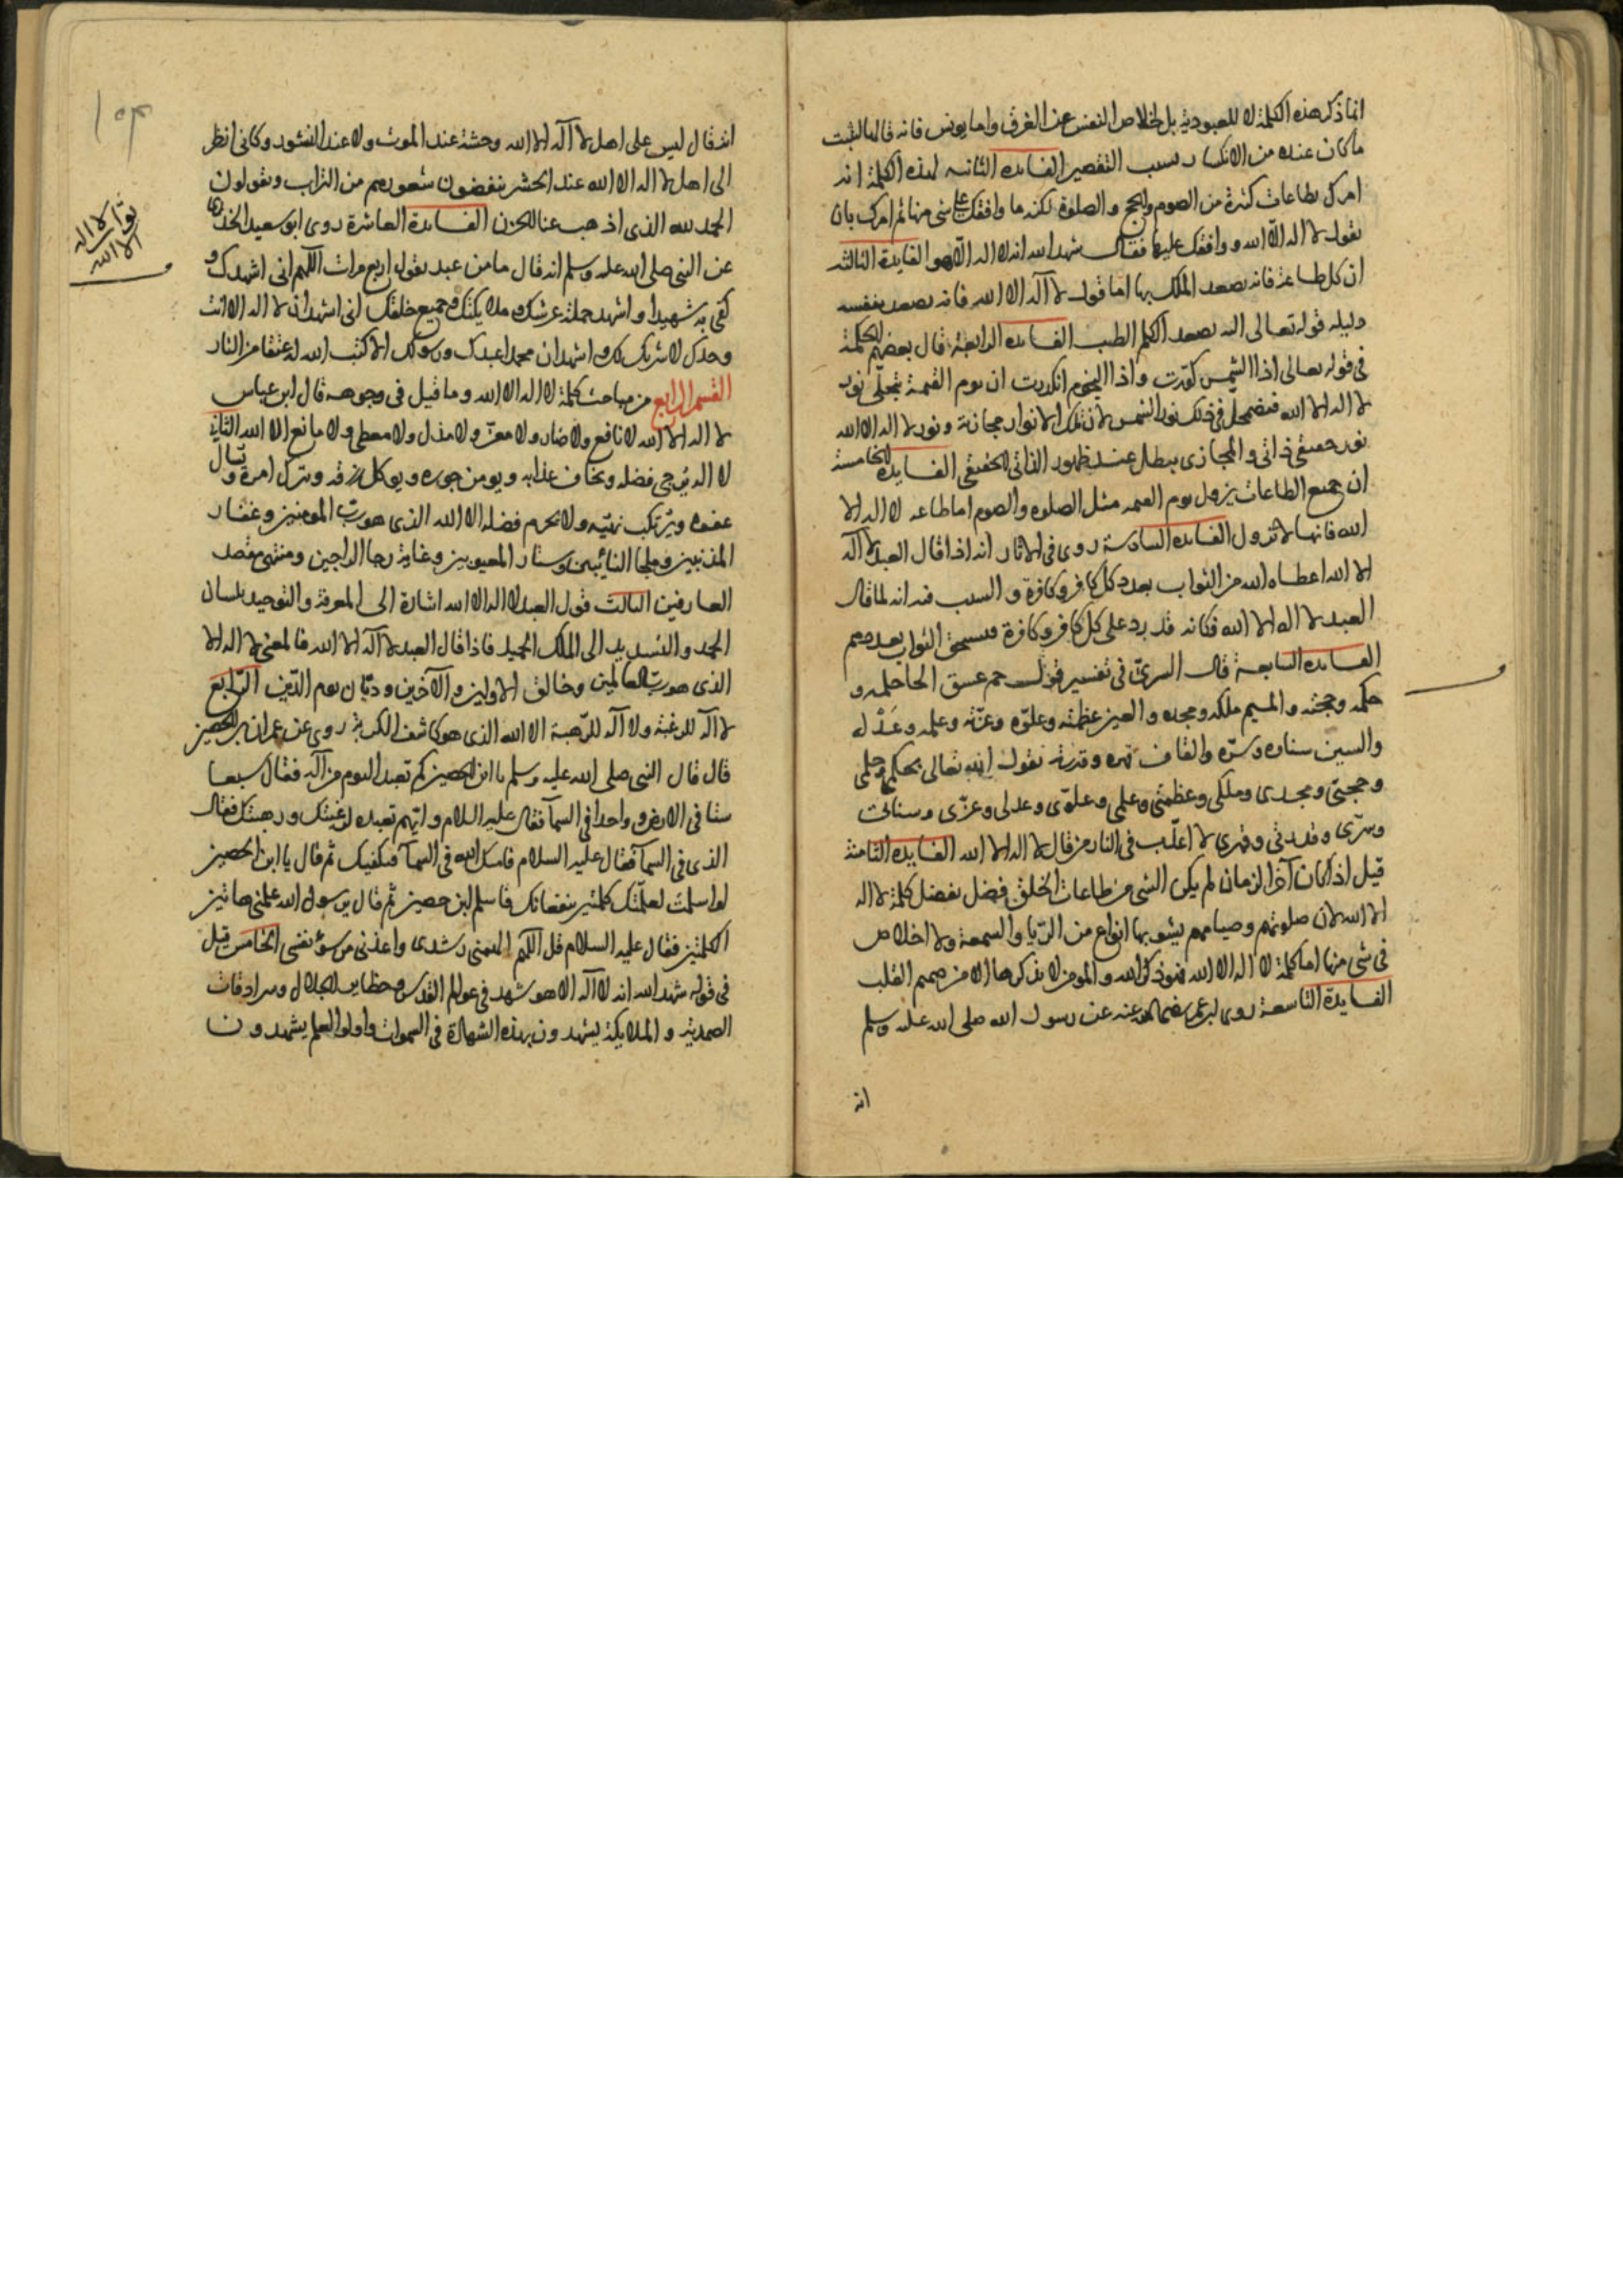 انما ذكر هذه الكلمة لا للعبودية بل لخلاص النفس عن الغرق واما يونس فانه قالها لثبت
ما كان عنده من الانكسار بسبب التقصير الفايده الثانيه لهذه الكلمة انه
امرك بطاعات كثيرة من الصوم والحج والصلوة لكنه ما وافقك على شى منها ثم امرك بان
تقول لا اله الا الله ووافقك عليها فقال شهد الله انه لا اله الا هو الفايدة الثالثه
ان كل طاعة فانه يصعد الملك بها اما قول لا اله الا الله فانه يصعد بنفسه
دليله قوله تعالى اليه يصعد الكلم الطيب الفايده الرابعة قال بعضهم الحكمة
فى قوله تعالى اذا الشمس كورت واذا النجوم انكدرت ان يوم القيمة يتجلى نور
لا اله الا الله فيضمحل فى ذلك نور الشمس لان تلك الانوار مجازية ونور لا اله الا الله
نور حقيقى ذاتى والمجازى يبطل عند ظهور الذاتى الحقيقى الفايده الخامسة
ان جميع الطاعات يزول يوم القيمه مثل الصلوه والصوم اما طاعه لا اله الا
الله فانها لا تزول الفايده السادسة روى فى الاثار انه اذا قال العبد لا اله
الا الله اعطاه الله من الثواب بعدد كل كافر وكافرة و السبب فيه انه لما قال
العبد لا اله الا الله فكانه قد رد على كل كافر وكافرة فيستحق الثواب بعددهم
الفايده السابعة قال السرى فى تفسير قوله حم عسق الحا حلمه و
حكمه وحجته والميم ملكه ومجده والعين عظمته وعلوه وعزته وعلمه وعدله
والسين سناه وسره والقاف قهره وقدرته يقول الله تعالى بحكمى وحلمى
وحجتى ومجدى وملكى وعظمتى وعلمى وعلوى وعدلى وعزى وسنائى
وسرى وقدرتى وقهرى لا اعذب فى النار من قال لا اله الا الله الفايدة الثامنة
قيل اذا كان آخر الزمان لم يكن لشى من طاعات الخلق فضل بفضل كلمة لا اله
الا الله لان صلوتهم وصيامهم يشوبها انواع من الريا والسمعة ولا اخلاص
فى شى منها اما كلمة لا اله الا الله فهو ذكر الله والمومن لا يذكرها الا من صميم القلب
الفايدة التاسعة روى ابن عمر رضى الله عنه عن رسول الله صلى الله عليه وسلم
انه
انه قال ليس على اهل لا اله الا الله وحشة عند الموت ولا عند النشور وكانى انظر
الى اهل لا اله الا الله عند الحشر ينفضون شعورهم من التراب ويقولون
الحمد لله الذى اذهب عنا الحزن الفايدة العاشرة روى ابو سعيد الخدرى
عن النبى صلى الله عليه وسلم انه قال ما من عبد يقول اربع مرات اللهم انى اشهدك و
كفى به شهيدا و اشهد حملة عرشك وملايكتك وجميع خلقك انى اشهد ان لا اله الا انت
وحدك لا شريك لك و اشهد ان محمدا عبدك ورسولك الا كتب الله له عتقا من النار
القسم الرابع من مباحث كلمة لا اله الا الله وما قيل فى وجوهه قال ابن عباس
لا اله الا الله لا نافع ولا ضار ولا معز ولا مذل ولا معطى ولا مانع الا الله الثانى
لا اله يرجى فضله ويخاف عذابه ويومن جوره ويوكل رزقه ويترك امره ويسال
عفوه ويرتكب نهيه ولا يحرم فضله الا الله الذى هو رب المومنين وغفار
المذنبين وملجا التائبين وستار المعيوبين وغاية رجا الراجين ومنتهى مقصد
العارفين الثالث قول العبد لا اله الا الله اشارة الى المعرفة والتوحيد بلسان
الحمد والتسديد الى الملك المجيد فاذا قال العبد لا اله الا الله فالمعنى لا اله الا
الذى هو رب العالمين وخالق الاولين و الآخرين وديان يوم الدين الرابع
لا اله للرغبة ولا اله للرهبة الا الله الذى هو كاشف الكربة روى عن عمران بن الحصين
قال قال النبى صلى الله عليه وسلم يا ابن الحصين كم تعبد اليوم من اله فقال سبعا
ستا فى الارض وواحدا فى السمآ فقال عليه السلام وايهم تعبده لرغبتك ورهبتك فقال
الذى فى السمآ فقال عليه السلام فامسك اله فى السمآ فيكفيك ثم قال يا ابن الحصين
لو اسلمت لعلمتك كلمتين ينفعانك فاسلم ابن حصين ثم قال يرسول الله علمنى هاتين
الكلمتين فقال عليه السلام قل اللهم الهمنى رشدى واعذنى من سؤ نفسى الخامس قيل
فى قوله شهد الله انه لا اله الا هو شهد فى عوالم القدس وحظاير الجلال وسرادقات
الصمدية و الملايكة يشهدون بهذه الشهادة فى السموات واولوا العلم يشهدون
لا اله
الا الله